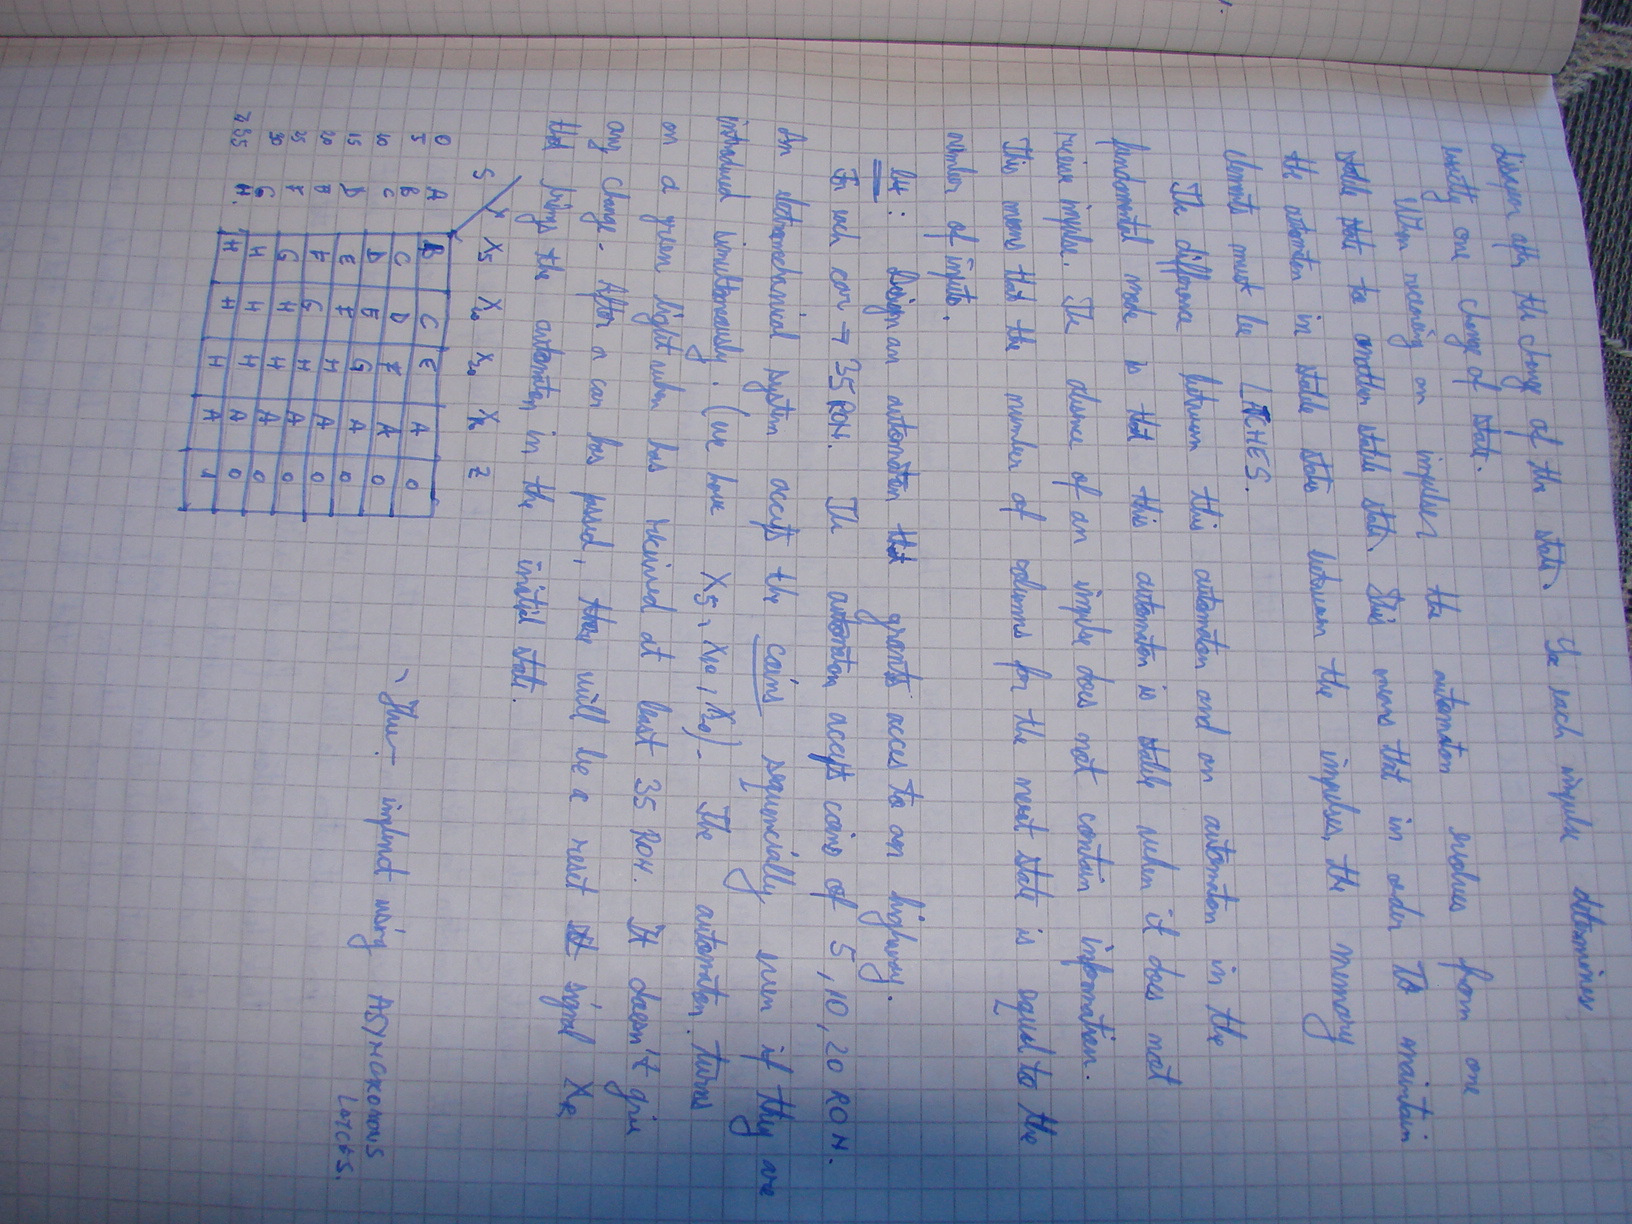 disappear after the change of the state. So each impulse determines
exactly one change of state.
When receiving an impulse the automaton evolves from one
stable state to another stable state. This means that in order to maintain
the automaton in stable states between the impulses, the memory
elements must be LATCHES.
The difference between this automaton and an automaton in the
fundamental mode is that this automaton is stable when it does not
receive impulse. The absence of an impulse does not contain information.
This means that the number of columns for the next state is equal to the
number of inputs.
Design an automaton that grants acces to an highway.
For each car → 35 RON. The automaton accepts coins of 5, 10, 20 RON.
An electromechanical system accepts the coins sequencially, even if they are
introduced simultaneously. (we have X5, X10, X20). The automaton turns
on a green light when has received at least 35 RON. It doesn't give
any change. After a car has passed, there will be a reset signal XR
that brings the automaton in the initial state.
S X X5 X10 X20 XR Z
0 A B C E A 0
5 B C D F A 0
10 C D E G A 0
15 D E F H A 0
20 E F G H A 0
25 F G H H A 0
30 G H H H A 0
≥35 H H H H A 1
implement using ASYNCRONOUS
LATCHES.